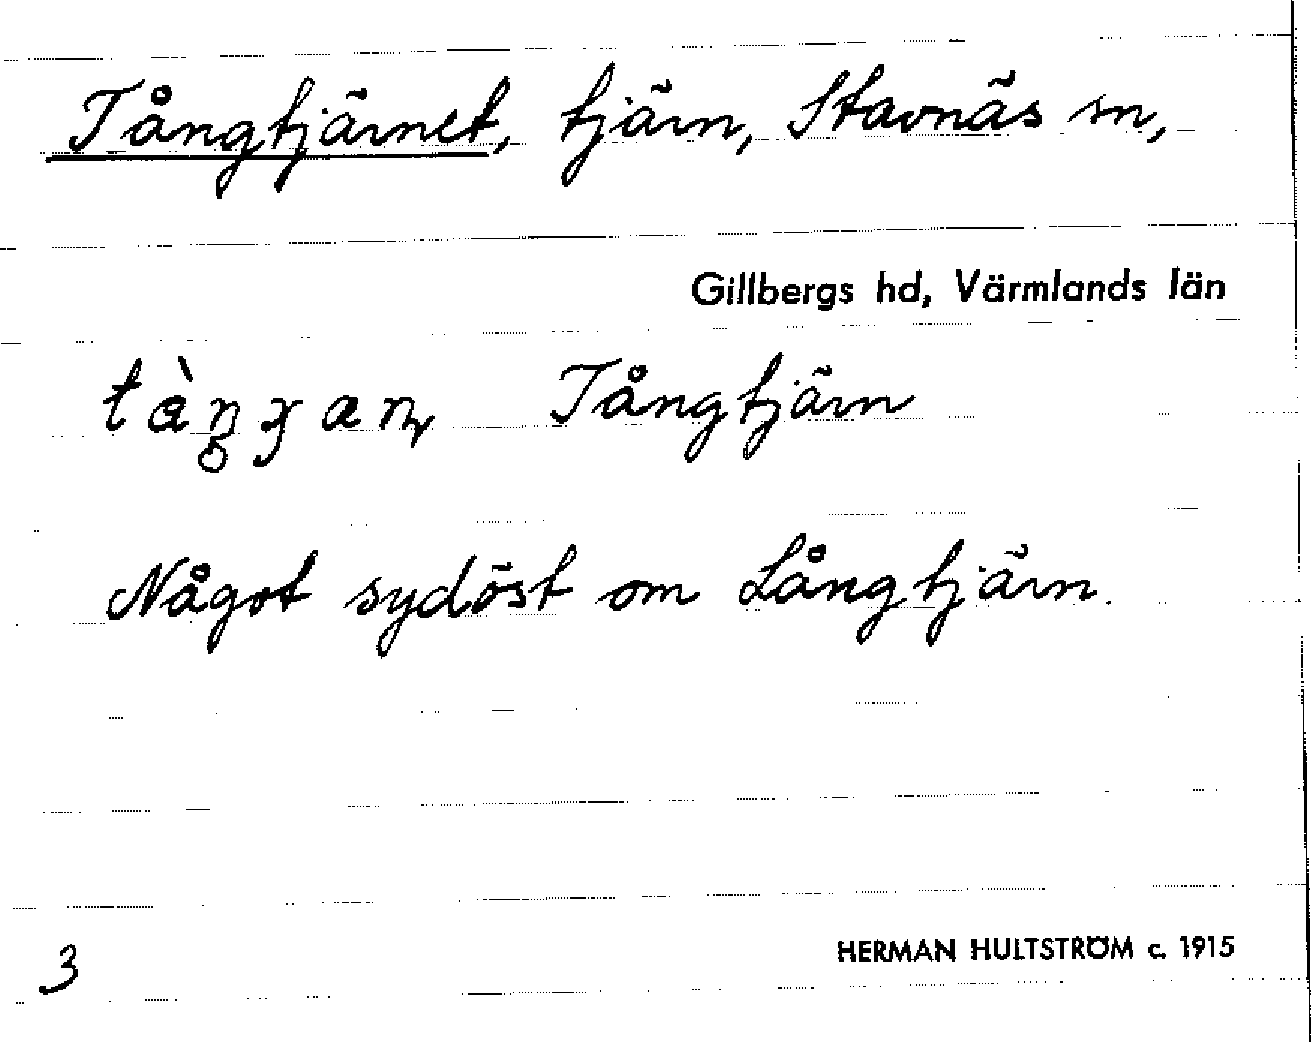 Tångtjärnet, tjärn, Stavnäs sn,
Gillbergs hd, Värmlands län
Tångtjärn
Något sydöst om Långtjärn.
3
HERMAN HULTSTRÖM c. 1915